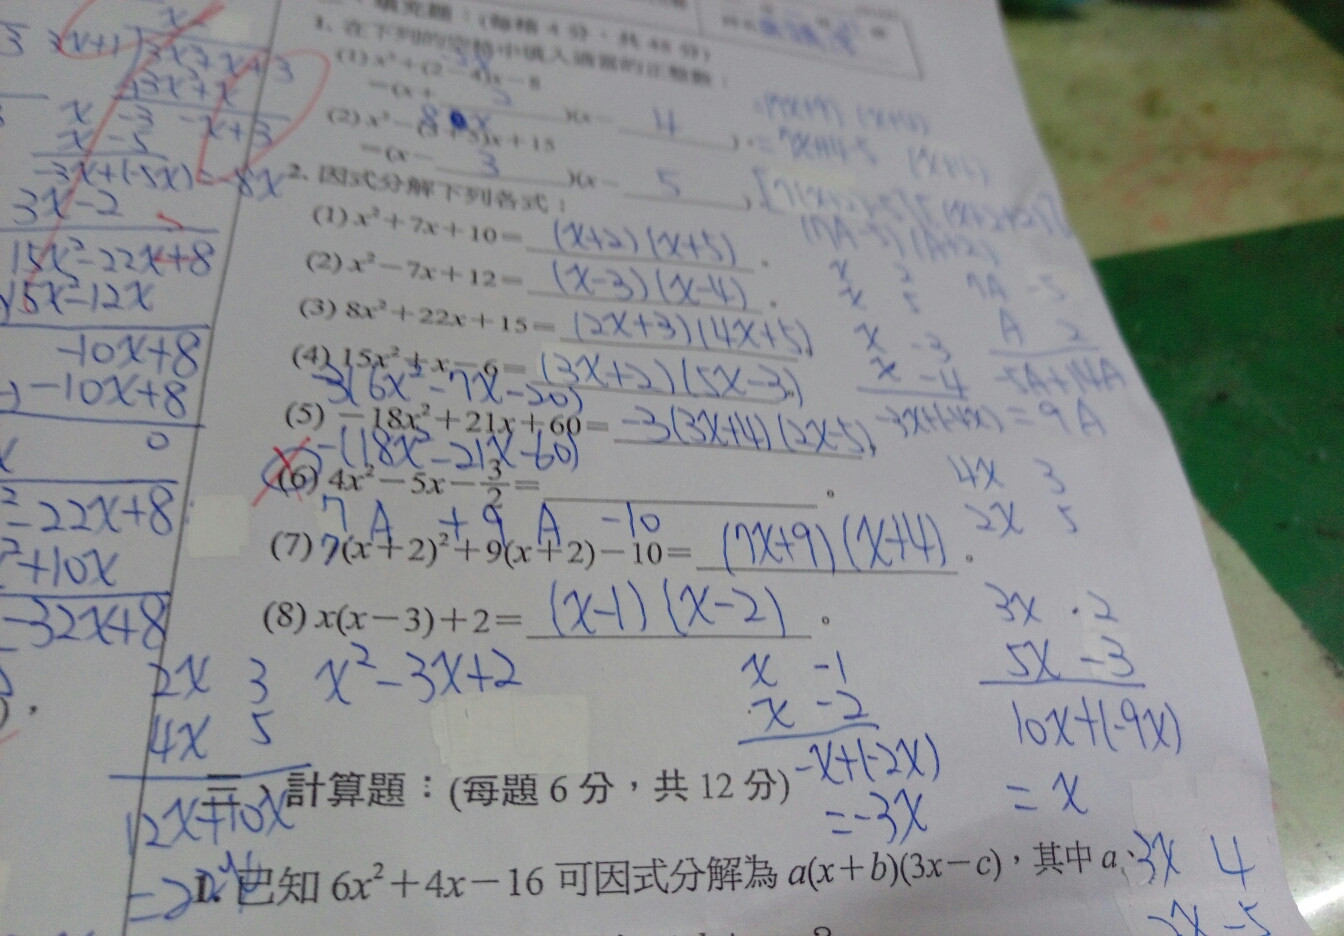 1. 在下列的空格中填入適當的正整數：
(1) x²+(2-4)x-8
=(x+ 2 )(x- 4 )。
(2) x²-(3+5)x+15
=(x- 3 )(x- 5 )
2. 因式分解下列各式：
(1) x²+7x+10= (x+2)(x+5) 。
(2) x²-7x+12= (x-3)(x-4) 。
(3) 8x²+22x+15= (2x+3)(4x+5)
(4) 15x²+x-6= (3x+2)(5x-3)
-3(6x²-7x-20)
(5) -18x²+21x+60= -3(3x+4)(2x-5)
-(18x²-21x-60)
(6) 4x²-5x-3/2= 。
7 A +9 A -10
(7) 7(x+2)²+9(x+2)-10= (7x+9)(x+4) 。
(8) x(x-3)+2= (x-1)(x-2) 。
x²-3x+2
二、計算題：(每題 6 分，共 12 分)
1. 已知 6x²+4x-16 可因式分解為 a(x+b)(3x-c)，其中 a、
3x+1
3x²+x
-x+3
x -3
x -5
-3x+(-5x)=-8x
3x-2
15x²-22x+8
15x²-12x
-10x+8
-10x+8
0
-22x+8
+10x
-32x+8
2x 3
4x 5
12x+10x
(7A-5)(A+2)
x 2
x 5
7A -5
A 2
-5A+14A
=9A
x -3
x -4
-3x+(-4x)
4x 3
2x 5
3x 2
5x -3
10x+(-9x)
=x
x -1
x -2
-x+(-2x)
=-3x
3x 4
2x -5